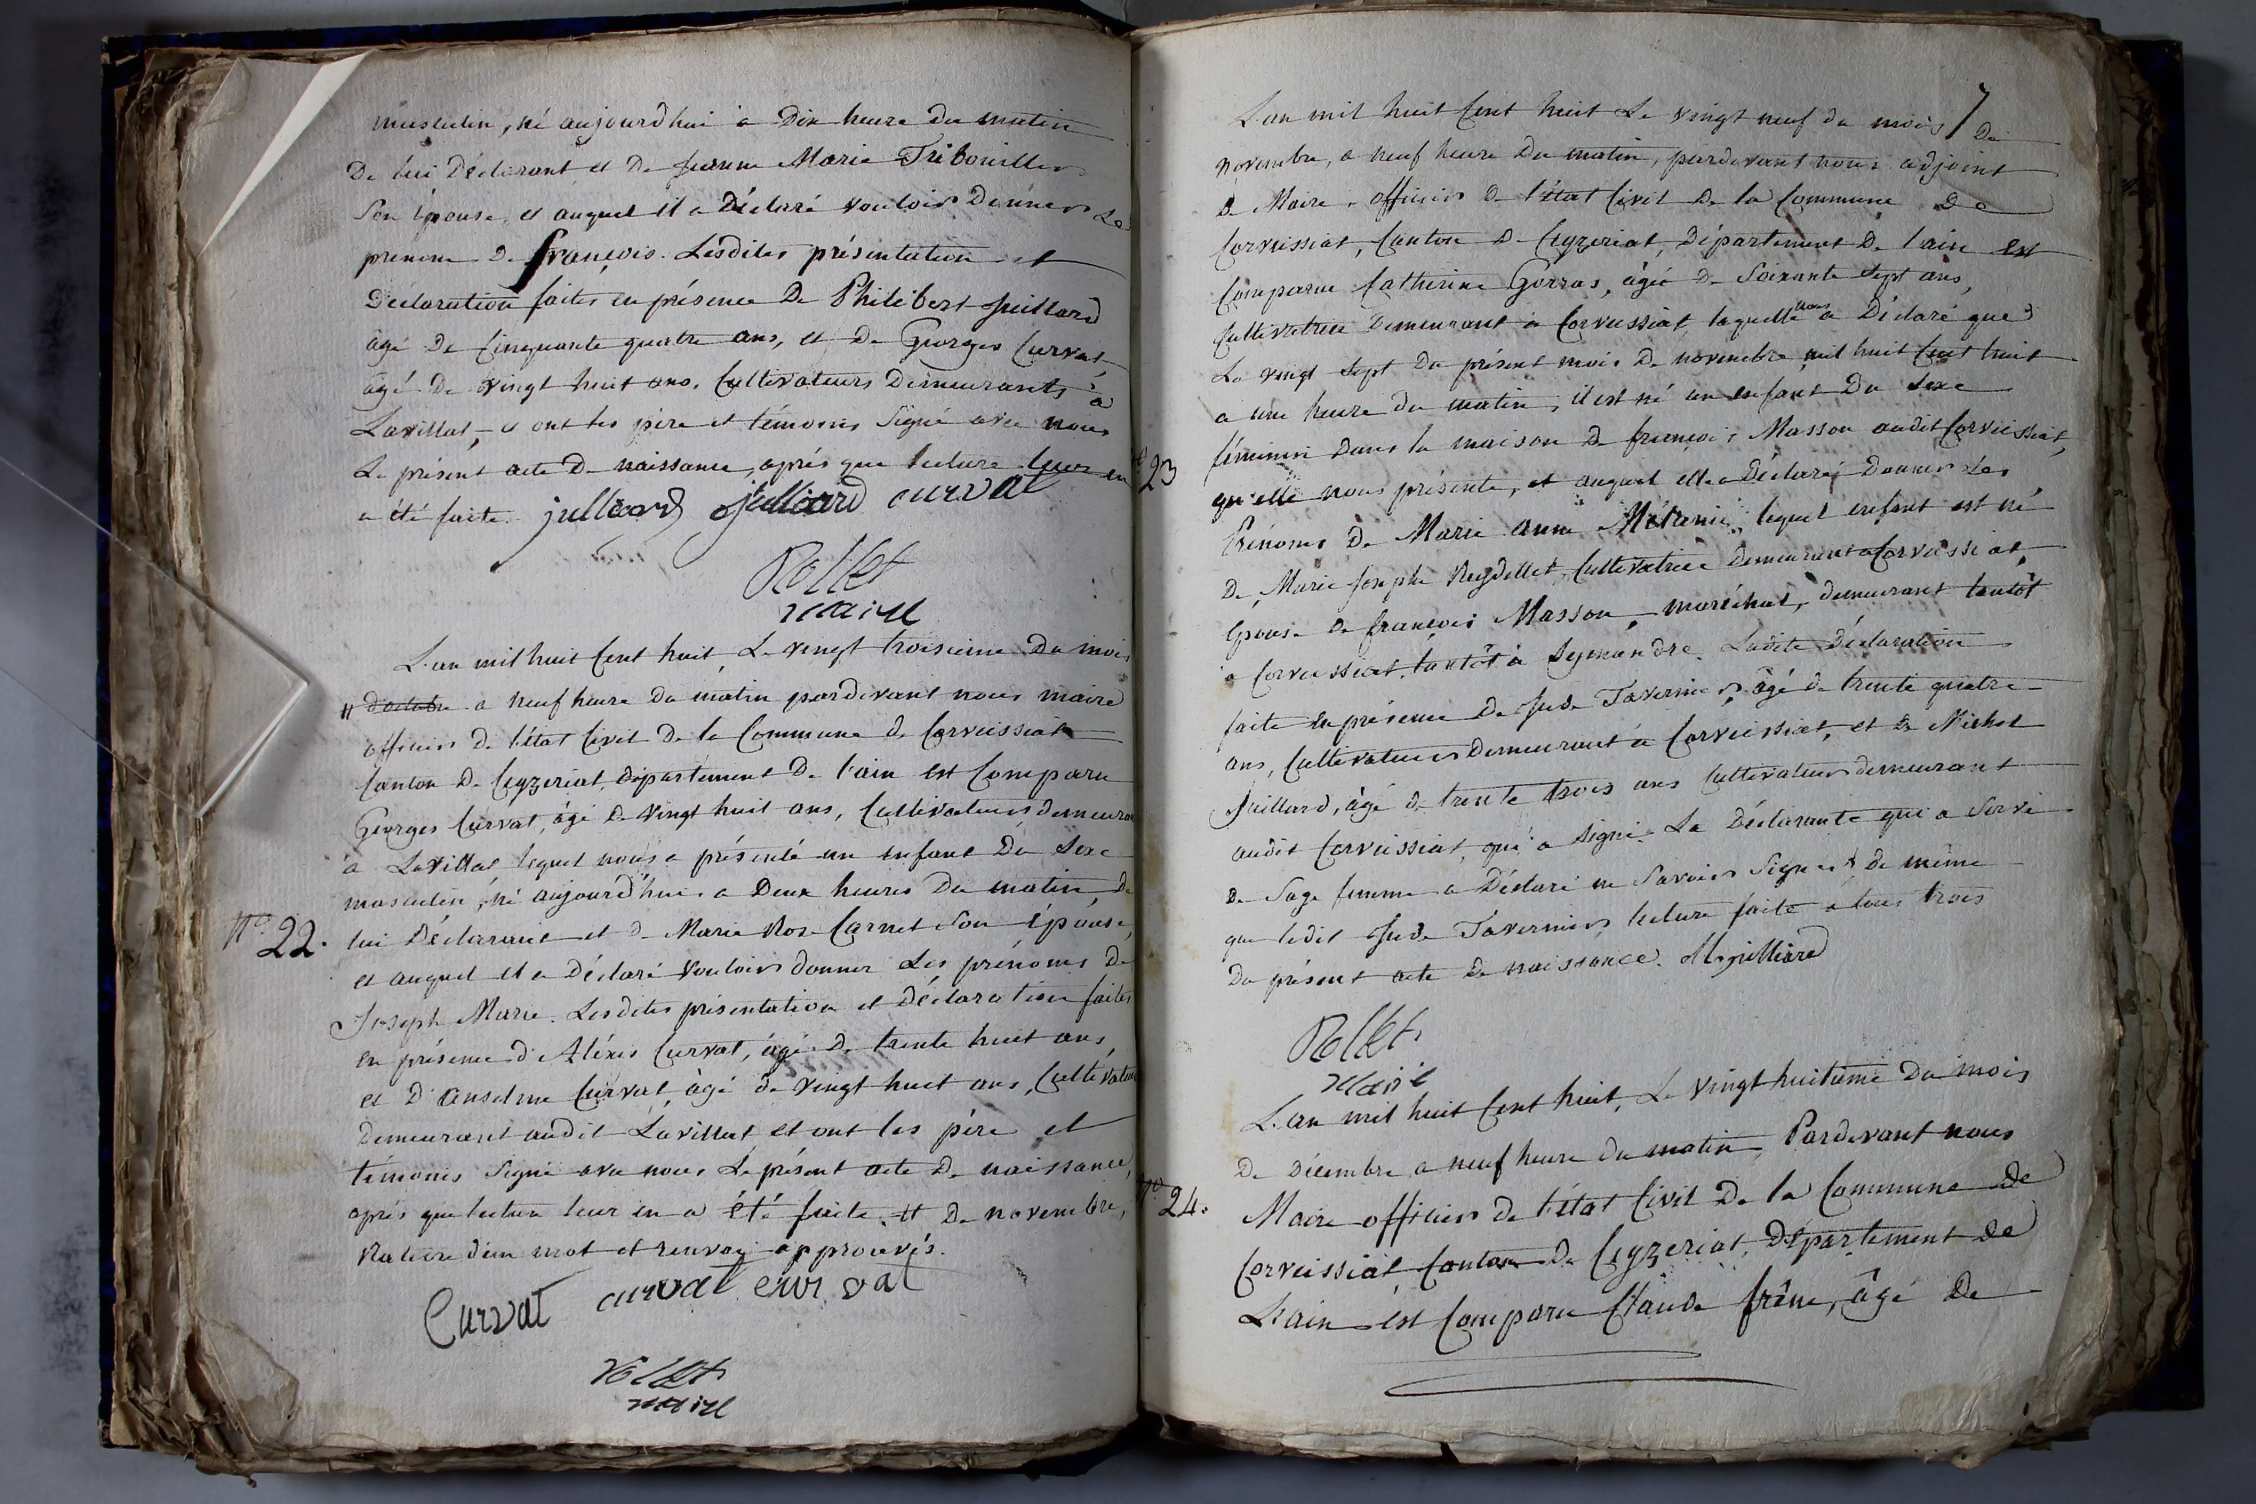 masculin, né aujourd'hui a Dix heure du matin
De lui Déclarant et De Jeanne Marie Tribouillet
Son épouse, et auquel il a Déclaré vouloir Donner Le
prénom De françois. Lesdites présentation et
Déclaration faites en présence De Philibert Juillard
âgé De Cinquante quatre ans, et De Georges Curvat
âgé De vingt huit ans, Cultivateurs Demeurants à
Lavillat, et ont les père et témoins Signé avec nous
Le présent acte De naissance, après que lecture leur en
a été faite. juilliard Juilliard curvat
Rollet
maire
L'an mil huit Cent huit, Le vingt troisieme Du mois
# d'octobre a neuf heure Du matin pardevant nous maire
officier De l'état Civil De la Commune De Corveissiat
Canton De Ceyzeriat, département De l'ain est Comparu
Georges Curvat, âgé De vingt huit ans, Cultivateur demeurant
à Lavillat lequel nous a présenté un enfant Du Sexe
masculin, né aujourd'hui a Deux heures Du matin, De
N° 22. lui Déclarant et De Marie Rose Carnet Son épouse,
et auquel il a Déclaré vouloir donner Les prénoms De
Joseph Marie. Lesdites présentation et Déclaration faites
en présence d'Aléxis Curvat, âgé De trente huit ans,
et D'anselme Curvat, âgé de vingt huit ans, Cultivateurs
Demeurant audit Lavillat et ont les père et
témoins Signé avec nous Le présent acte De naissance,
après que lecture leur en a été faite. # De novembre,
Rature d'un mot et renvoi approuvés.
Curvat curvat curvat
Rollet
maire
7
L'an mil huit Cent huit Le vingt neuf du mois De
novembre, a neuf heure Du matin, pardevant nous adjoint
De Maire, officier De l'état Civil De la Commune De
Corveissiat, Canton De Ceyzeriat, Département De l'ain est
Comparue Catherine Gorras, âgée De Soixante Sept ans,
Cultivatrice Demeurant à Corveissiat, laquelle nous a Déclaré que
Le vingt Sept Du présent mois De novembre mil huit Cent huit
a une heure du matin, il est né un enfant Du Sexe
féminin Dans la maison De françois Masson audit Corveissiat,
N° 23 qu'elle nous présente, et auquel elle a Déclaré Donner Les
Prénoms De Marie anne, lequel enfant est né
De Marie Josephe Reydellet, Cultivatrice Demeurant a Corveissiat,
épouse De françois Masson, maréchal, demeurant tantôt
à Corveissiat, tantôt à Simandre. Ladite Déclaration
faite En présence De Jude Tavernier, âgé de trente quatre
ans, Cultivateur Demeurant à Corveissiat, et De Michel
Juillard, âgé De trente trois ans Cultivateur demeurant
audit Corveissiat, qui a Signé. La Déclarante qui a Servi
De Sage femme a Déclaré ne Savoir Signer & de même
que ledit Jude Tavernier, lecture faite a tous trois
Du présent acte De naissance. M juilliard
Rollet
Maire
L'an mil huit Cent huit, Le vingt huitième Du mois
De Décembre a neuf heure du matin, Pardevant nous
N° 24. Maire officier de l'état Civil De la Commune De
Corveissiat Canton De Ceyzeriat, Département De
L'ain est Comparu Claude frêne, âgé De